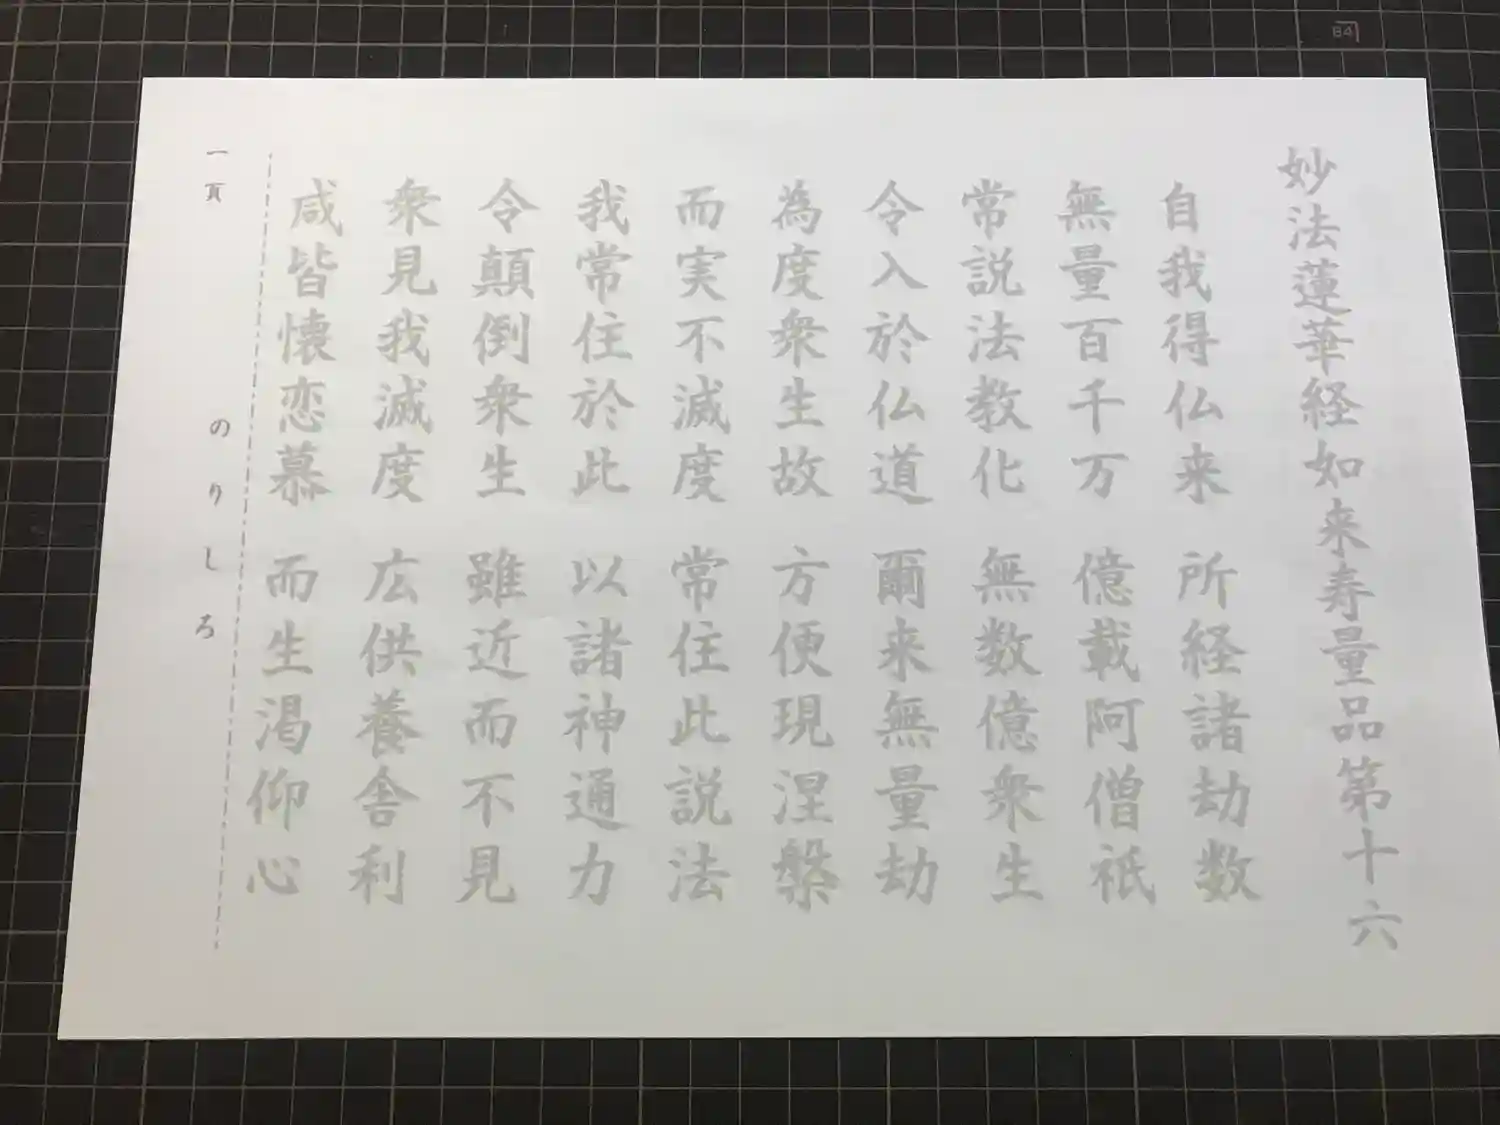 妙法蓮華経如来寿量品第十六
自我得仏来 所経諸劫数
無量百千万 億載阿僧祇
常説法教化 無数億衆生
令入於仏道 爾来無量劫
為度衆生故 方便現涅槃
而実不滅度 常住此説法
我常住於此 以諸神通力
令顛倒衆生 雖近而不見
衆見我滅度 広供養舎利
咸皆懐恋慕 而生渇仰心
一頁 のりしろ
B4